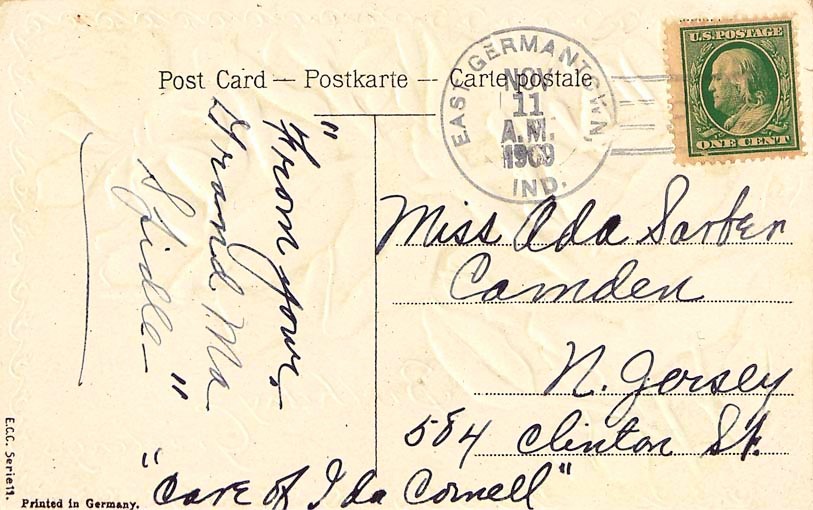 Post Card — Postkarte — Carte postale
EAST GERMANTOWN, IND.
NOV
11
A.M.
1909
U.S. POSTAGE
ONE CENT
"From your
Grand Ma
Fidle"
Miss Ada Sarber
Camden
N. Jersey
584 Clinton St.
"Care of Ida Cornell"
E.C.C. Serie 11.
Printed in Germany.